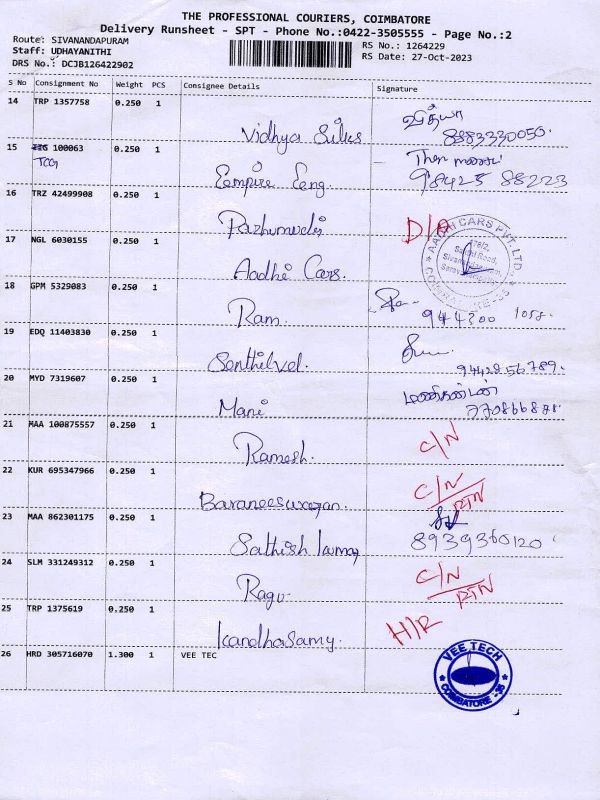 THE PROFESSIONAL COURIERS, COIMBATORE
Delivery Runsheet - SPT - Phone No.:0422-3505555 - Page No.:2
Route: SIVANANDAPURAM
Staff: UDHAYANITHI
DRS No.: DCJB126422902
RS No.: 1264229
RS Date: 27-Oct-2023
S No Consignment No Weight PCS Consignee Details Signature
14 TRP 1357758 0.250 1 Vidhya Silks வித்யா
8883330050.
15 100063 0.250 1 Eempire Eeng
TCG 98425 88223
16 TRZ 42499908 0.250 1 Pazhamudir D/A
17 NGL 6030155 0.250 1 Aadhi Cars.
AADHI CARS PVT. LTD.
COIMBATORE-35
18 GPM 5329083 0.250 1 Ram. 944300 1058.
19 EDQ 11403830 0.250 1 Senthilvel. 9442856789.
20 MYD 7319607 0.250 1 Mani மணிகண்டன்
770866871.
21 MAA 100875557 0.250 1 Ramesh. C/N
22 KUR 695347966 0.250 1 Baraneeswaran. C/N
RTN
23 MAA 862301175 0.250 1 Sathish kumar 8939360120.
24 SLM 331249312 0.250 1 Ragu. C/N
RTN
25 TRP 1375619 0.250 1 Kandhasamy. H/R
26 HRD 305716070 1.300 1 VEE TEC
VEE TECH
COIMBATORE - 35